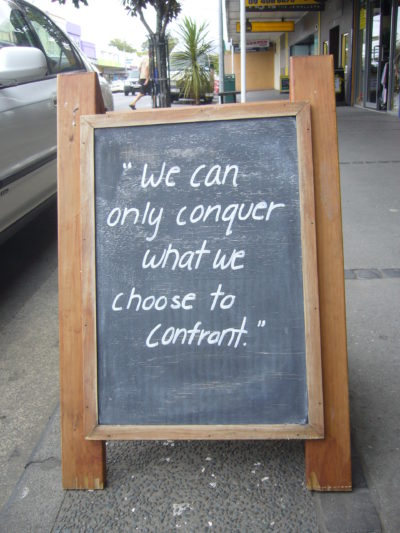 "We can
only conquer
what we
choose to
confront."